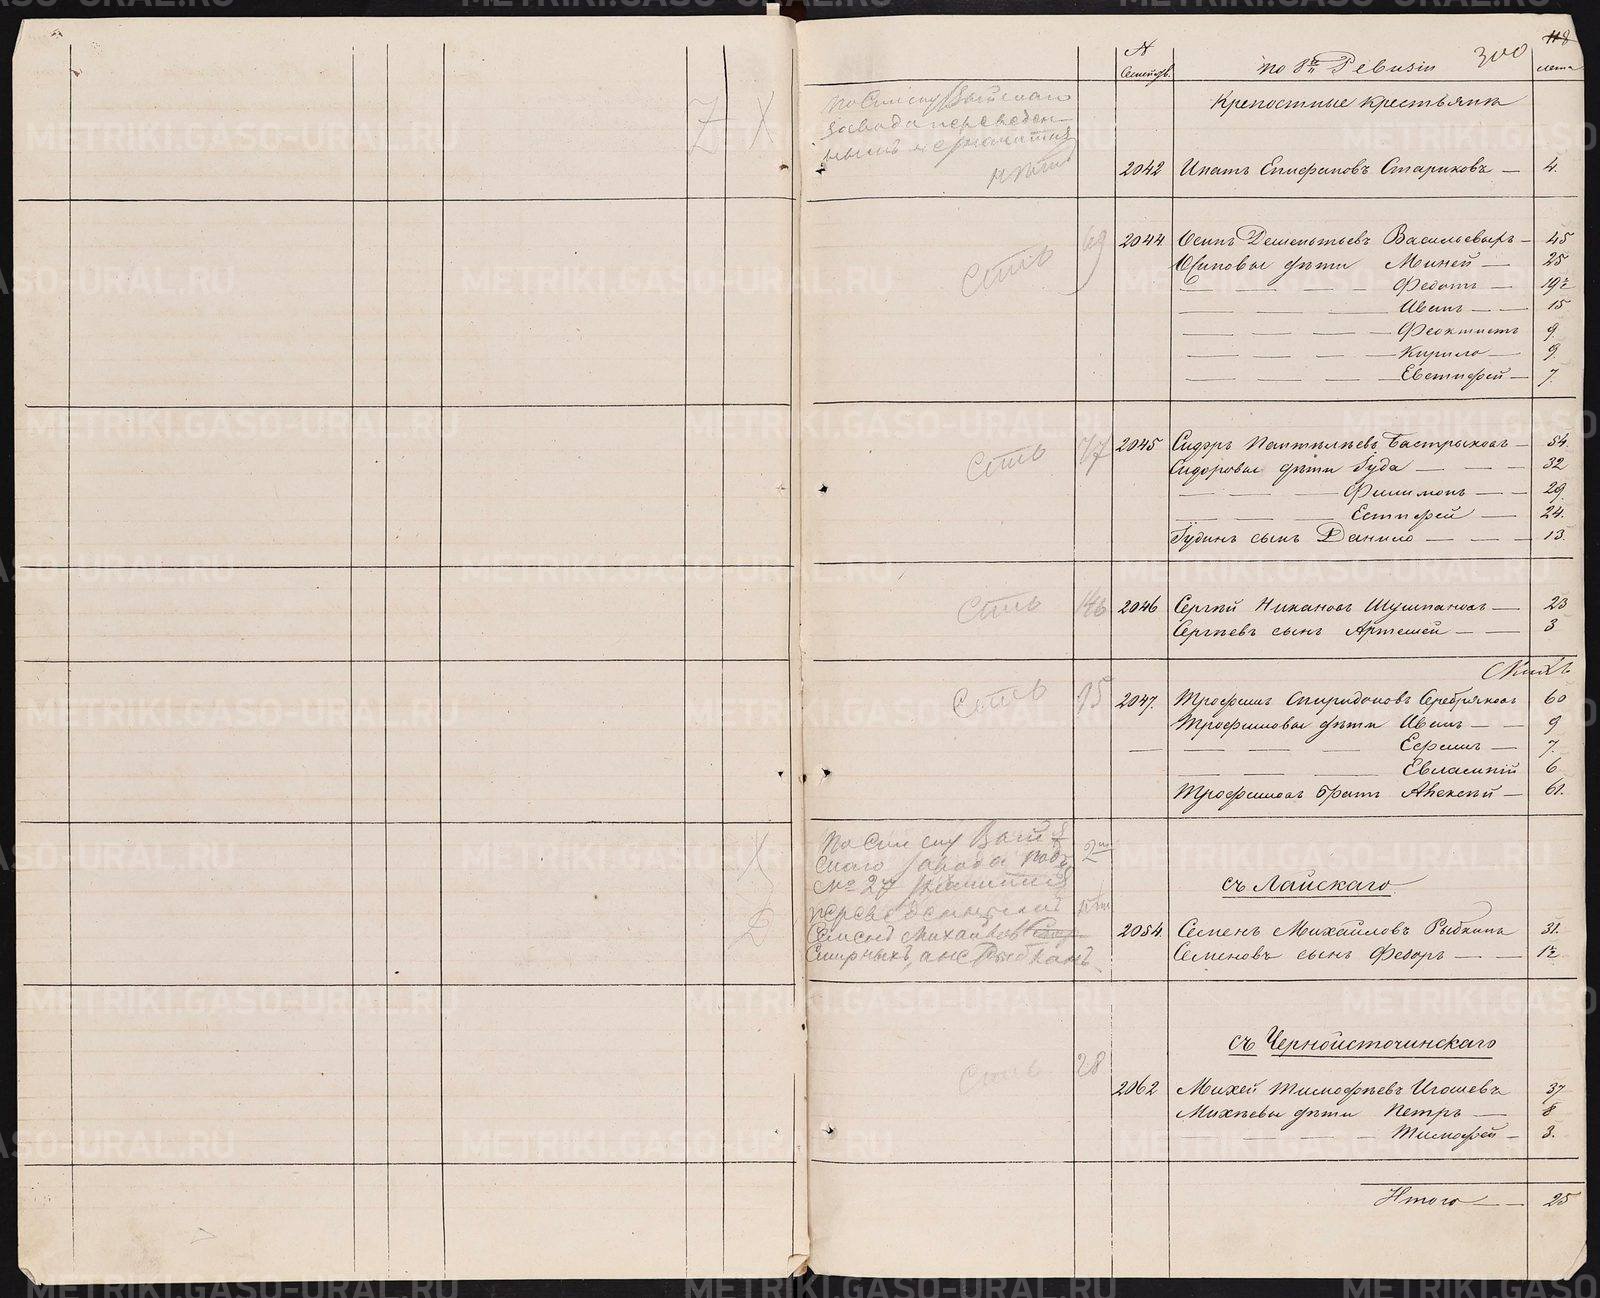 № Семействъ.
по 8й Ревизіи
300
118
лета
Крепостные крестьяна
По списку Выйскаго
завода
2042 Ипатъ Епифановъ Стариковъ — 4.
Есть 69 2044 Осипъ Дементьевъ Васильевыхъ — 45
Осиповы дѣти Миней — 25
— — — — Федотъ — 19½
— — — — Иванъ — — 15
— — — — Феоктистъ 9
— — — — Кирило — 9.
— — — — Евстифей — 7.
Есть 77 2045 Сидоръ Пантилѣевъ Бастрыковъ — 54.
Сидоровы дѣти Іуда — — — 32
— — — Филимонъ — — 29.
— — — Естифей — 24.
Іудинъ сынъ Данило — — — 13.
Есть 146 2046 Сергѣй Никоновъ Шушпановъ — 23
Сергѣевъ сынъ Артемей — — 3
Есть 15 2047. Трофимъ Спиридоновъ Серебряковъ 60
Трофимовы дѣти Иванъ — — 9
— — — — Ефимъ — 7.
— — — Евлампій 6
Трофимовъ братъ Алексѣй — 61.
По списку Вый-
скаго завода подъ
№ 27
Семенъ Михайловъ
Смирныхъ, а не Рыбкинъ
съ Лайскаго
2054. Семенъ Михайловъ Рыбкинъ 31.
Семеновъ сынъ Федоръ — — 1½
съ Черноисточинскаго
Есть 28 2062 Михей Тимофѣевъ Игошевъ 37
Михѣевы дѣти Петръ — 8
— — — Тимофей — 3.
Итого — — 25
METRIKI.GASO-URAL.RU